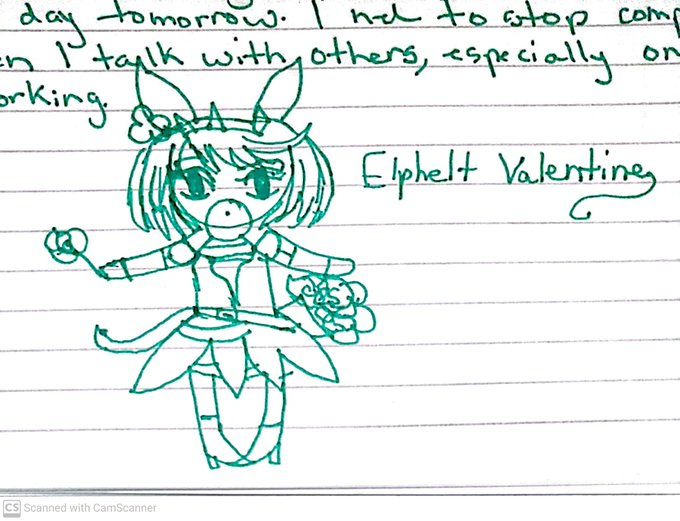 day tomorrow. I nd to stop comp
en I talk with others, especially on
orking.
Elphelt Valentine
CS Scanned with CamScanner